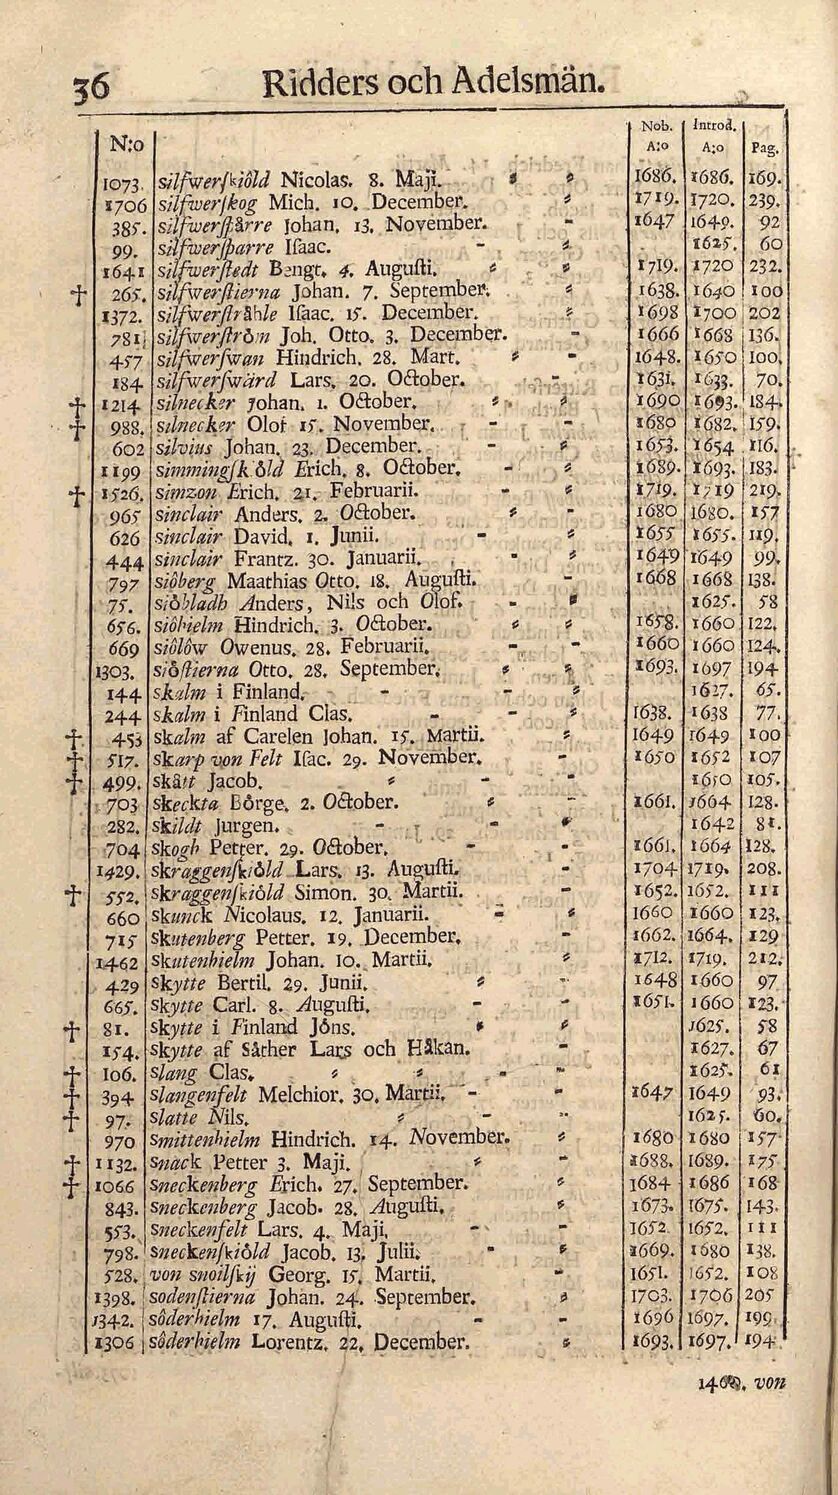 36 Ridders och Adelsmän.
N:o Nob. A:o Introd. A:o Pag.
1073. silfwerſkiöld Nicolas. 8. Maji. 1686. 1686. 169.
1706 silfwerſkog Mich. 10. December. 1719. 1720. 239.
385. silfwerſpårre Johan. 13. November. 1647 1649. 92
99. silfwerſparre Iſaac. 1625. 60
1641 silfwerſtedt Bengt. 4. Auguſti. 1719. 1720 232.
† 265. silfwerſtierna Johan. 7. September. 1638. 1640 100
1372. silfwerſtråhle Iſaac. 15. December. 1698 1700 202
781. silfwerſtrôm Joh. Otto. 3. December. 1666 1668 136.
457 silfwerſwan Hindrich. 28. Mart. 1648. 1650 100.
184 silfwerſwärd Lars. 20. October. 1631. 1633. 70.
† 1214 silnecker Johan. 1. October. 1690 1693. 184.
† 988. silnecker Olof 15. November. 1680 1682. 159.
602 silvius Johan. 23. December. 1653. 1654 116.
1199 simmingſkôld Erich. 8. October. 1689. 1693. 183.
† 1526. simzon Erich. 21. Februarii. 1719. 1719 219.
965 sinclair Anders. 2. October. 1680 1680. 157
626 sinclair David. 1. Junii. 1655 1655. 119.
444 sinclair Frantz. 30. Januarii. 1649 1649 99.
797 siôberg Maathias Otto. 18. Auguſti. 1668 1668 138.
75. siôbladh Anders, Nils och Olof. 1625. 58
656. siôhielm Hindrich. 3. October. 1658. 1660 122.
669 siôlôw Owenus. 28. Februarii. 1660 1660 124.
1303. siôſtierna Otto. 28. September. 1693. 1697 194
144 skalm i Finland. 1627. 65.
244 skalm i Finland Clas. 1638. 1638 77.
† 453 skalm af Carelen Johan. 15. Martii. 1649 1649 100
† 517. skarp von Felt Iſac. 29. November. 1650 1652 107
† 499. skått Jacob. 1650 105.
703 skeckta Bôrge. 2. October. 1661. 1664 128.
282. skildt Jurgen. 1642 81.
704 skogh Petter. 29. October. 1661. 1664 128.
1429. skraggenſkiôld Lars. 13. Auguſti. 1704 1719. 208.
† 552. skraggenſkiôld Simon. 30. Martii. 1652. 1652. 111
660 skunck Nicolaus. 12. Januarii. 1660 1660 123.
715 skutenberg Petter. 19. December. 1662. 1664. 129
1462 skutenhielm Johan. 10. Martii. 1712. 1719. 212.
429 skytte Bertil. 29. Junii. 1648 1660 97
665. skytte Carl. 8. Auguſti. 1651. 1660 123.
† 81. skytte i Finland Jôns. 1625. 58
154. skytte af Såther Lars och Håkan. 1627. 67
† 106. slang Clas. 1625. 61
† 394 slangenfelt Melchior. 30. Martii. 1647 1649 93.
† 97. slatte Nils. 1625. 60.
970 smittenhielm Hindrich. 14. November. 1680 1680 157
† 1132. snack Petter 3. Maji. 1688. 1689. 175
† 1066 sneckenberg Erich. 27. September. 1684 1686 168
843. sneckenberg Jacob. 28. Auguſti. 1673. 1675. 143.
553. sneckenfelt Lars. 4. Maji. 1652 1652. 111
798. sneckenſkiôld Jacob. 13. Julii. 1669. 1680 138.
528. von snoilſkij Georg. 15. Martii. 1651. 1652. 108
1398. sodenſtierna Johan. 24. September. 1703. 1706 205
1342. sôderhielm 17. Auguſti. 1696 1697. 199
1306 sôderhielm Lorentz. 22. December. 1693. 1697. 194
von